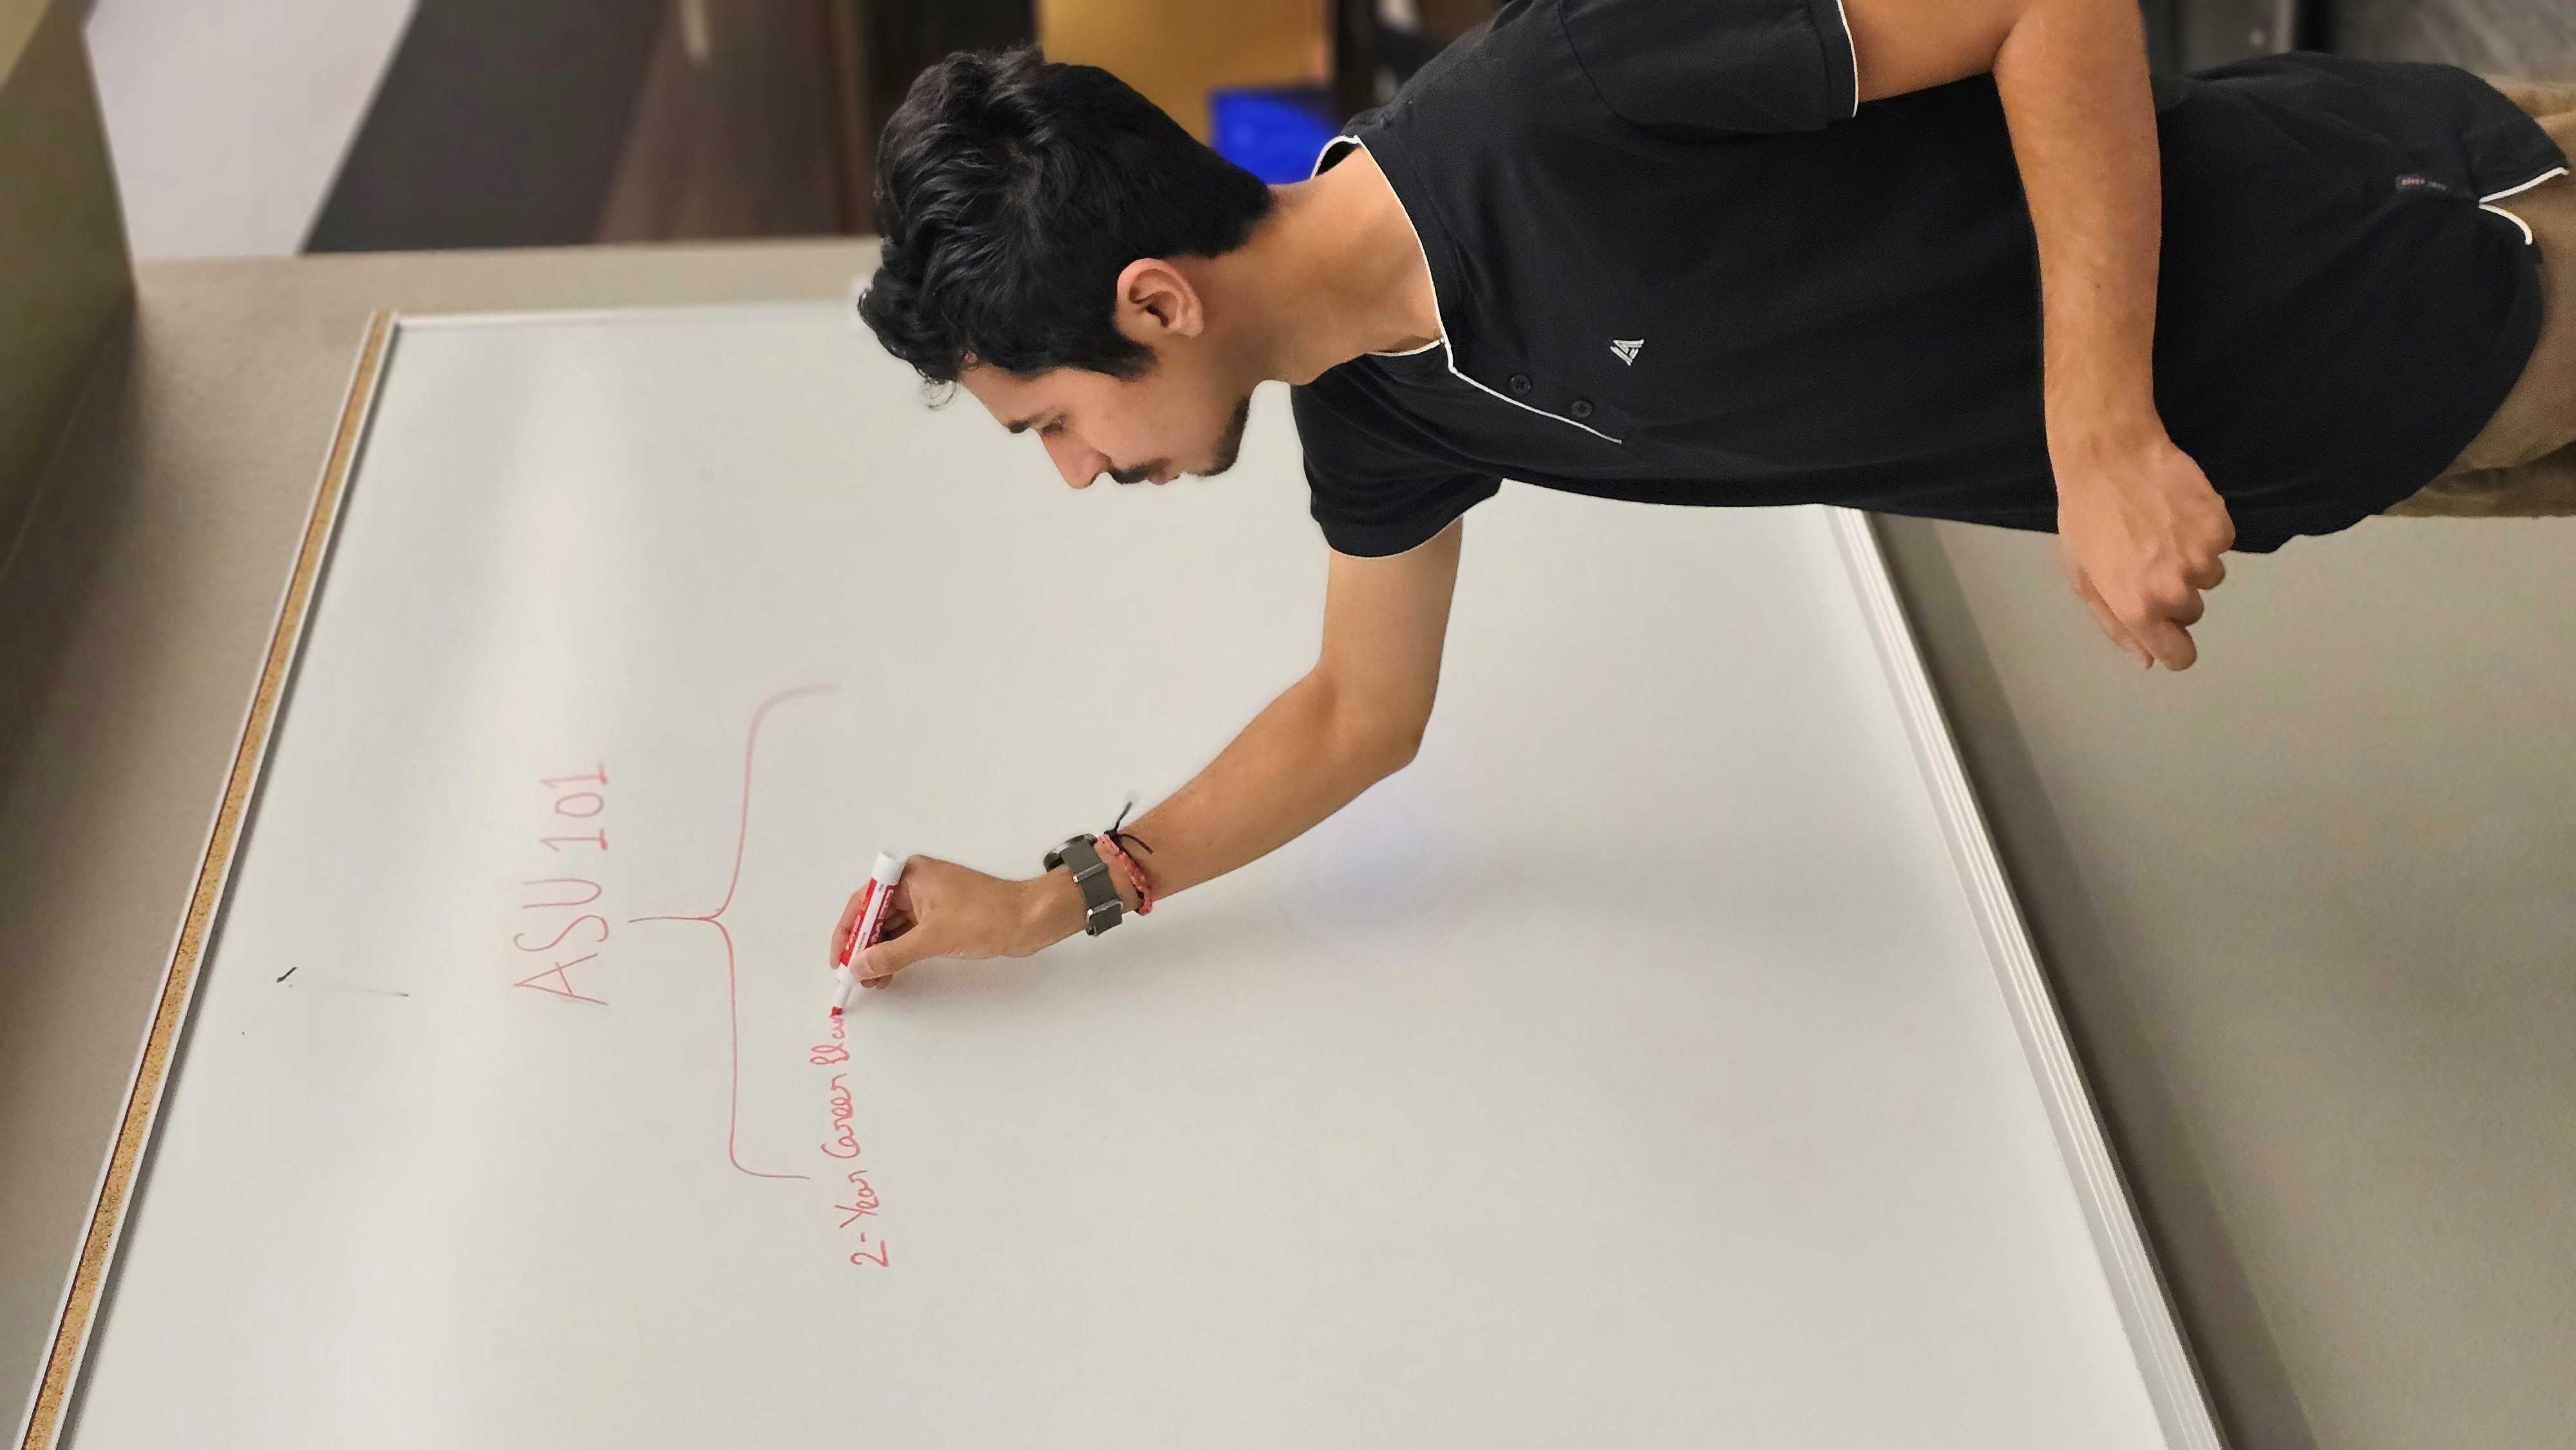 ASU 101
2-Year Career Plan